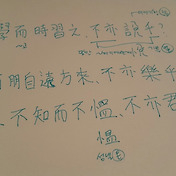 學而時習之、不亦說乎?
有朋自遠方來、不亦樂乎
、不知而不慍、不亦君
慍
성낼 온